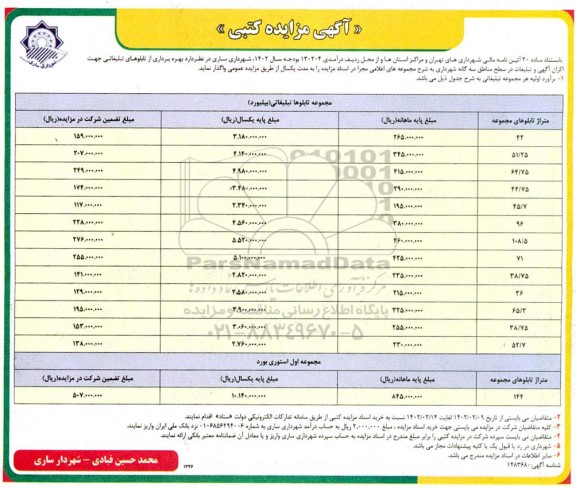 « آگهی مزایده کتبی »
شهرداری ساری
باستناد ماده ۳۰ آئین نامه مالی شهرداری های تهران و مراکز استان ها و از محل ردیف درآمدی ۱۳۰۲۰۴ بودجه سال ۱۴۰۲، شهرداری ساری در نظر دارد بهره برداری از تابلوهای تبلیغاتی جهت
اکران آگهی و تبلیغات در سطح مناطق سه گانه شهرداری به شرح مجموعه های اعلامی مجزا در اسناد مزایده را به مدت یکسال از طریق مزایده عمومی واگذار نماید.
۱- برآورد اولیه هر مجموعه تبلیغاتی به شرح جدول ذیل می باشد.
مجموعه تابلوها تبلیغاتی(بیلبورد)
متراژ تابلوهای مجموعه مبلغ پایه ماهانه(ریال) مبلغ پایه یکسال(ریال) مبلغ تضمین شرکت در مزایده(ریال)
۴۲ ۲۶۵.۰۰۰.۰۰۰ ۳.۱۸۰.۰۰۰.۰۰۰ ۱۵۹.۰۰۰.۰۰۰
۵۱/۲۵ ۳۴۵.۰۰۰.۰۰۰ ۴.۱۴۰.۰۰۰.۰۰۰ ۲۰۷.۰۰۰.۰۰۰
۶۴/۷۵ ۴۱۵.۰۰۰.۰۰۰ ۴.۹۸۰.۰۰۰.۰۰۰ ۲۴۹.۰۰۰.۰۰۰
۴۴/۷۵ ۲۹۰.۰۰۰.۰۰۰ ۳.۴۸۰.۰۰۰.۰۰۰ ۱۷۴.۰۰۰.۰۰۰
۴۵/۷ ۱۹۵.۰۰۰.۰۰۰ ۲.۳۴۰.۰۰۰.۰۰۰ ۱۱۷.۰۰۰.۰۰۰
۹۶ ۳۸۰.۰۰۰.۰۰۰ ۴.۵۶۰.۰۰۰.۰۰۰ ۲۲۸.۰۰۰.۰۰۰
۱۰۸/۵ ۴۶۰.۰۰۰.۰۰۰ ۵.۵۲۰.۰۰۰.۰۰۰ ۲۷۶.۰۰۰.۰۰۰
۷۱ ۴۲۵.۰۰۰.۰۰۰ ۵.۱۰۰.۰۰۰.۰۰۰ ۲۵۵.۰۰۰.۰۰۰
۳۸/۷۵ ۲۳۵.۰۰۰.۰۰۰ ۲.۸۲۰.۰۰۰.۰۰۰ ۱۴۱.۰۰۰.۰۰۰
۳۶ ۲۱۵.۰۰۰.۰۰۰ ۲.۵۸۰.۰۰۰.۰۰۰ ۱۲۹.۰۰۰.۰۰۰
۶۵/۲ ۳۲۵.۰۰۰.۰۰۰ ۳.۹۰۰.۰۰۰.۰۰۰ ۱۹۵.۰۰۰.۰۰۰
۳۸/۷۵ ۲۵۵.۰۰۰.۰۰۰ ۳.۰۶۰.۰۰۰.۰۰۰ ۱۵۳.۰۰۰.۰۰۰
۵۲/۷ ۲۳۰.۰۰۰.۰۰۰ ۲.۷۶۰.۰۰۰.۰۰۰ ۱۳۸.۰۰۰.۰۰۰
ParsNamadData
مرکز فرآوری اطلاعات پارس نماد داده ها
پایگاه اطلاع رسانی مناقصه و مزایده
۰۲۱-۸۸۳۴۹۶۷۰-۵
مجموعه اول استوری بورد
متراژ تابلوهای مجموعه مبلغ پایه ماهانه(ریال) مبلغ پایه یکسال(ریال) مبلغ تضمین شرکت در مزایده(ریال)
۱۴۴ ۸۴۵.۰۰۰.۰۰۰ ۱۰.۱۴۰.۰۰۰.۰۰۰ ۵۰۷.۰۰۰.۰۰۰
۲- متقاضیان می بایستی از تاریخ ۱۴۰۲/۰۲/۰۹ لغایت ۱۴۰۲/۰۲/۱۴ نسبت به خرید اسناد مزایده کتبی از طریق سامانه تدارکات الکترونیکی دولت «ستاد» اقدام نمایند.
۳- کلیه متقاضیان شرکت در مزایده می بایستی جهت خرید اسناد مزایده، مبلغ ۲.۰۰۰.۰۰۰ ریال به حساب درآمد شهرداری ساری به شماره ۰۱۰۶۸۵۶۲۹۴۰۰۶ نزد بانک ملی ایران واریز نمایند.
۴- متقاضیان می بایست سپرده شرکت در مزایده کتبی را برابر مبلغ مندرج در اسناد مزایده به حساب سپرده شهرداری ساری واریز و یا معادل آن ضمانتنامه معتبر بانکی ارائه نمایند.
۵- شهرداری در رد یا قبول یک یا کلیه پیشنهادات مجاز می باشد.
۶- سایر اطلاعات در اسناد مزایده مندرج می باشد.
شناسه آگهی: ۱۴۸۳۶۸۰
۱۳۴۷
محمد حسین قبادی – شهردار ساری